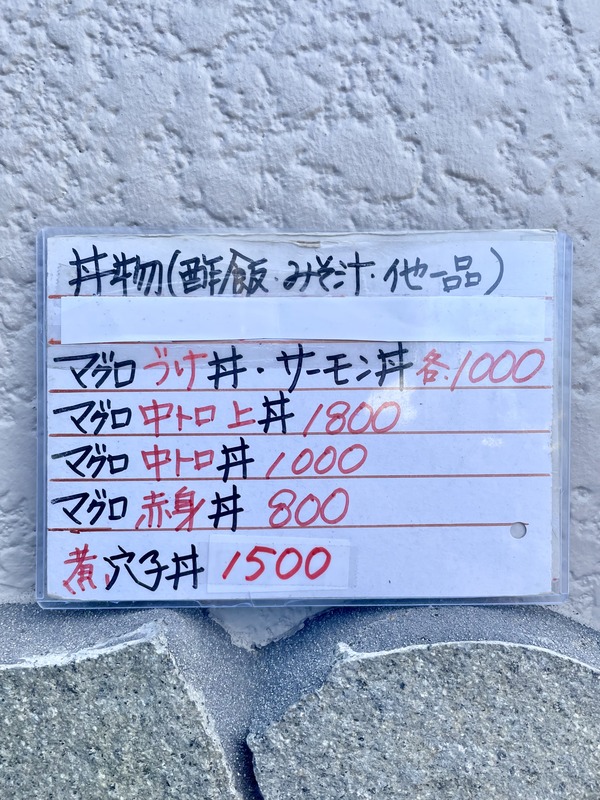 丼物(酢飯・みそ汁・他一品)
マグロづけ丼・サーモン丼各1000
マグロ中トロ上丼1800
マグロ中トロ丼1000
マグロ赤身丼800
煮穴子丼1500